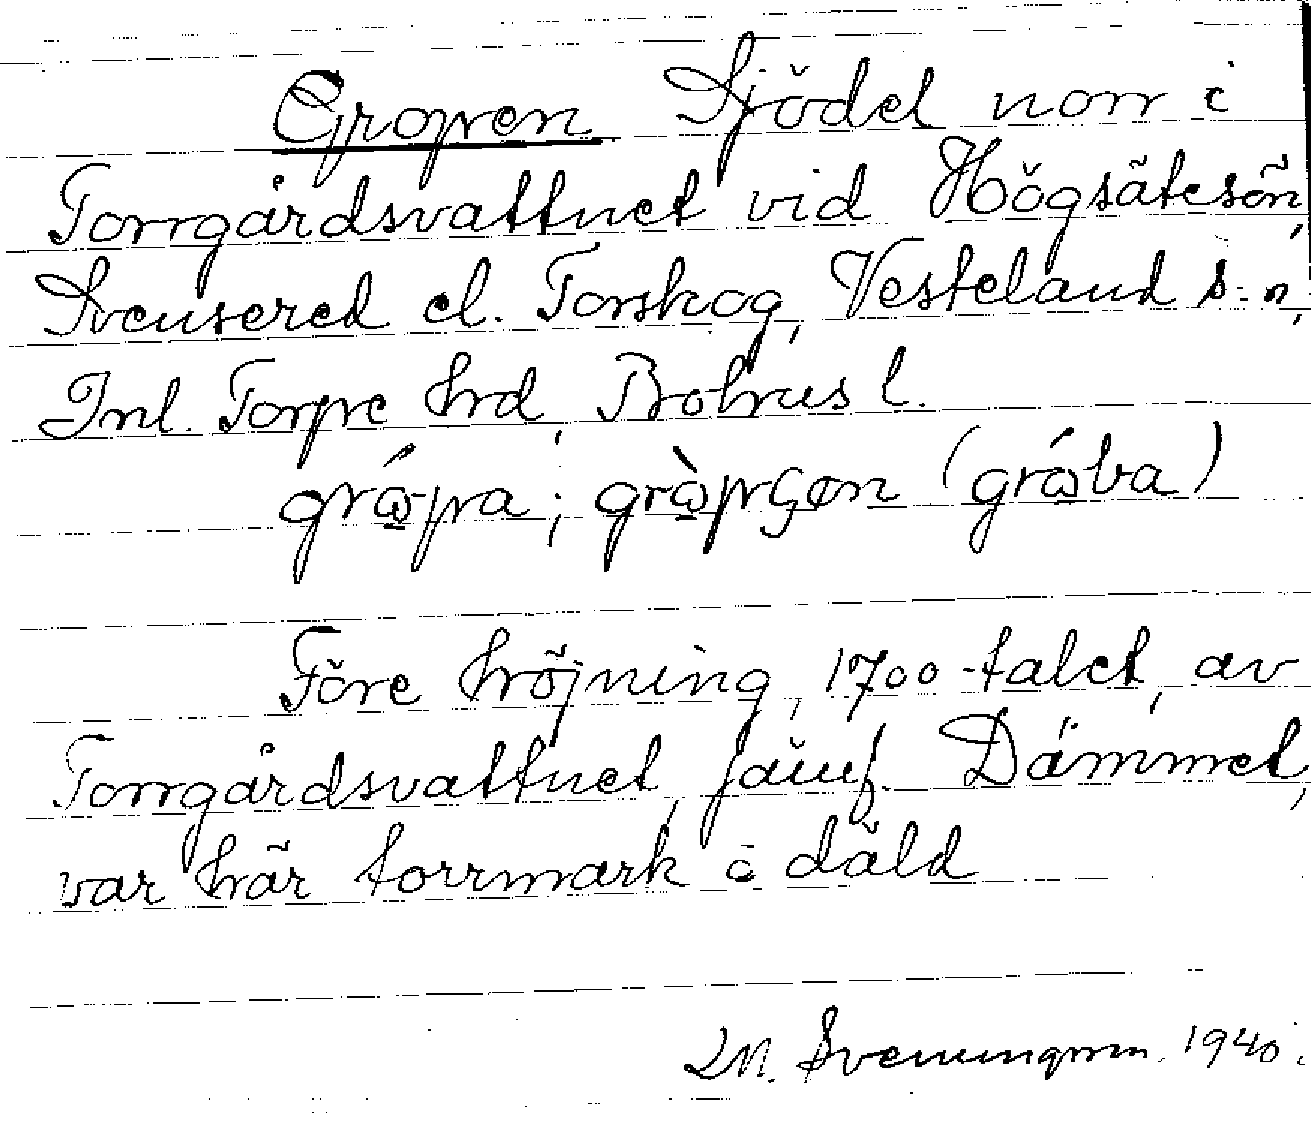 Gropen Sjödel norr i
Torrgårdsvattnet vid Högsätesön,
Svensered el. Torskog, Vesteland s-n,
Inl. Torpe hrd Bohus l.
(gråba)
Före höjning, 1700-talet, av
Torrgårdsvattnet, jämf. Dämmet,
var här torrmark i däld
M. Svenungsson 1940.